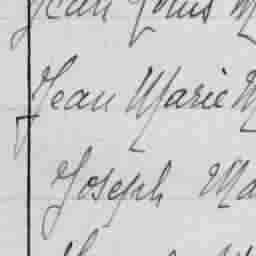 Jean Louis M
Jean Marie M
Joseph Ma